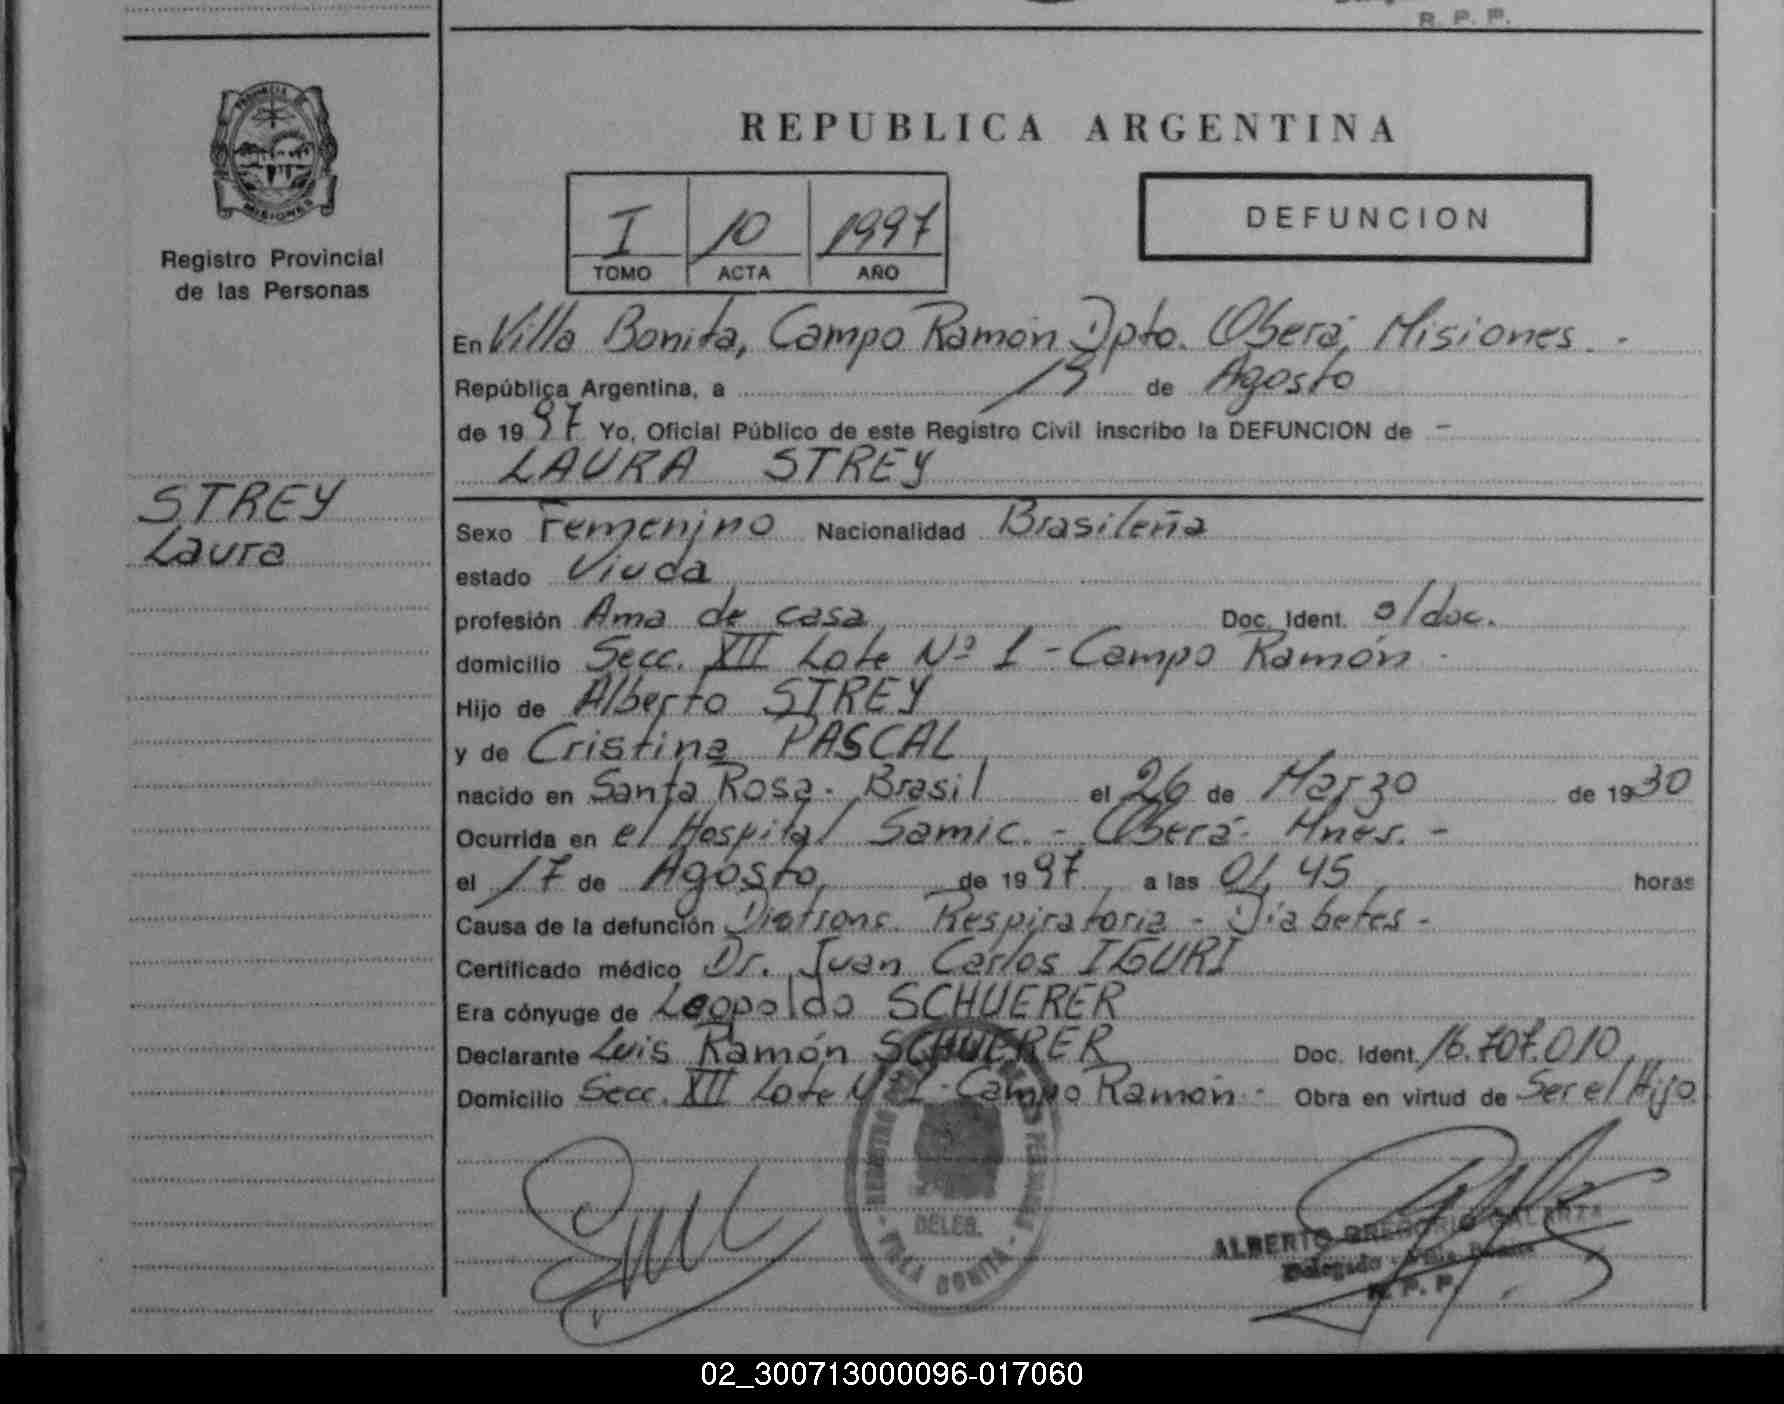 R. P. P.
REPUBLICA ARGENTINA
PROVINCIA DE
MISIONES
Registro Provincial
de las Personas
I 10 1997
TOMO ACTA AÑO
DEFUNCION
En Villa Bonita, Campo Ramón Dpto. Oberá, Misiones. -
República Argentina, a de Agosto
de 1997 Yo, Oficial Público de este Registro Civil inscribo la DEFUNCION de -
LAURA STREY
STREY
Laura
Sexo Femenino Nacionalidad Brasileña
estado Viuda
profesión Ama de casa Doc. Ident. s/doc.
domicilio Secc. XII Lote Nº 1 - Campo Ramón -
Hijo de Alberto STREY
y de Cristina PASCAL
nacido en Santa Rosa - Brasil el 26 de Marzo de 1930
Ocurrida en el Hospital Samic. - Oberá - Mnes. -
el 17 de Agosto de 1997 a las 01,45 horas
Causa de la defunción Respiratoria - Diabetes -
Certificado médico Dr. Juan Carlos IGURI
Era cónyuge de Leopoldo SCHUERER
Declarante Luis Ramón SCHUERER Doc. Ident. 16.707.010
Domicilio Secc. XII Lote Nº 1 - Campo Ramón - Obra en virtud de Ser el Hijo
DELEG.
VILLA BONITA
ALBERTO GREGORIO GALARZA
Delegado - Villa Bonita
R. P. P.
02_300713000096-017060